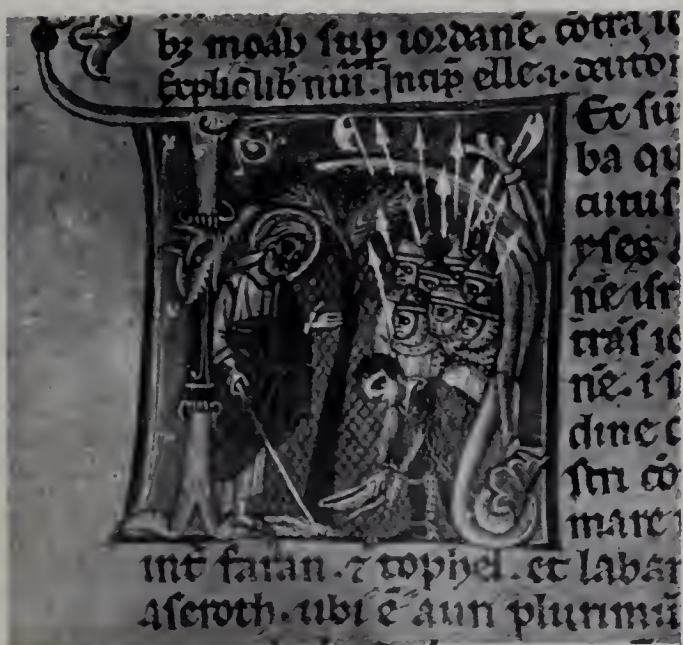 bȝ moab sup iordanē. cōtra ie
Explic̄ lib̄ nūi. Incip̄ elle.i. deuto
Ec sū
ba qu
cutus
yses
nē isr
trās io
ne. i s
dine c
stri cō
mare
int faran. ⁊ tophel. et laban
aseroth. ubi ē auri plurimū